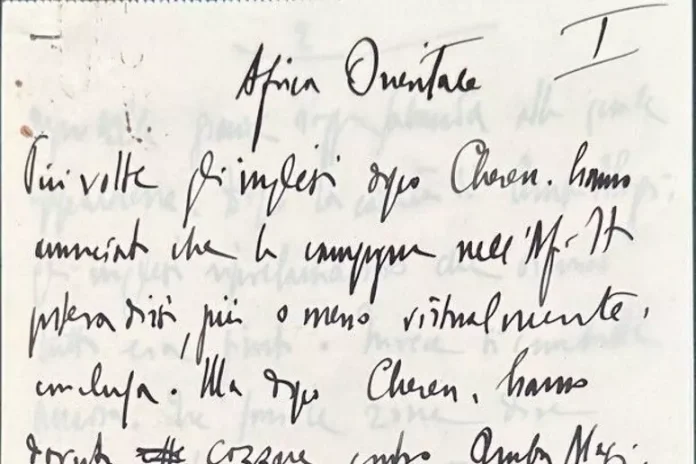 I
Africa Orientale
Più volte gl'inglesi dopo Cheren, hanno
annunciato che la campagna nell'Af. It
poteva dirsi, più o meno virtualmente,
conclusa. Ma dopo Cheren, hanno
dovuto cozzare contro Amba Alagi.